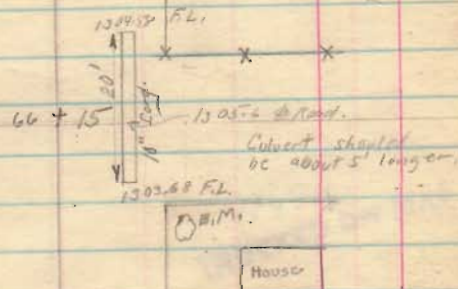 1304.58 F.L.
20'
66 + 15
18" Conc.
1305.6 ⌀ Road.
Culvert should
be about 5' longer.
1303.68 F.L.
B.M.
House